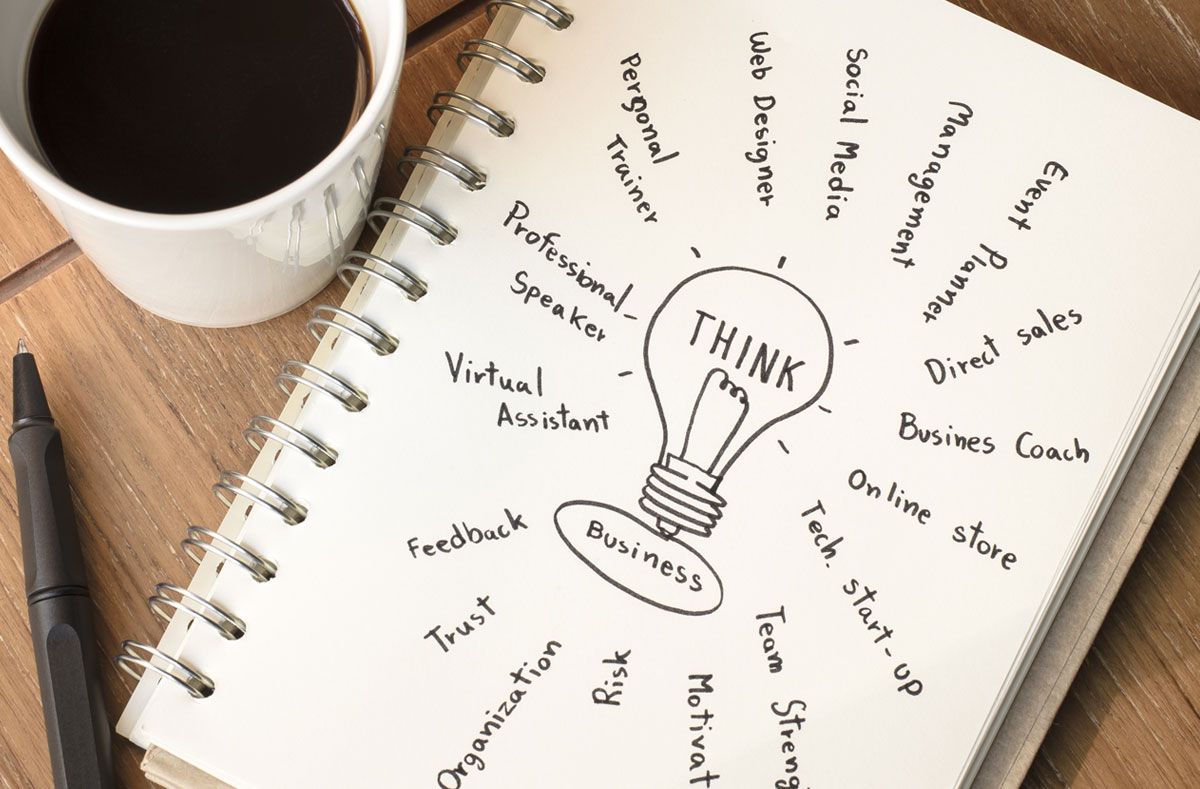 Pergonal
Trainer
Web Designer
Social Media
Management
Event Planner
Professional-
Speaker
THINK
Direct sales
Virtual
Assistant
Busines Coach
Online store
Tech. start-up
Feedback
Business
Trust
Organization
Risk
Motivat
Team Streng